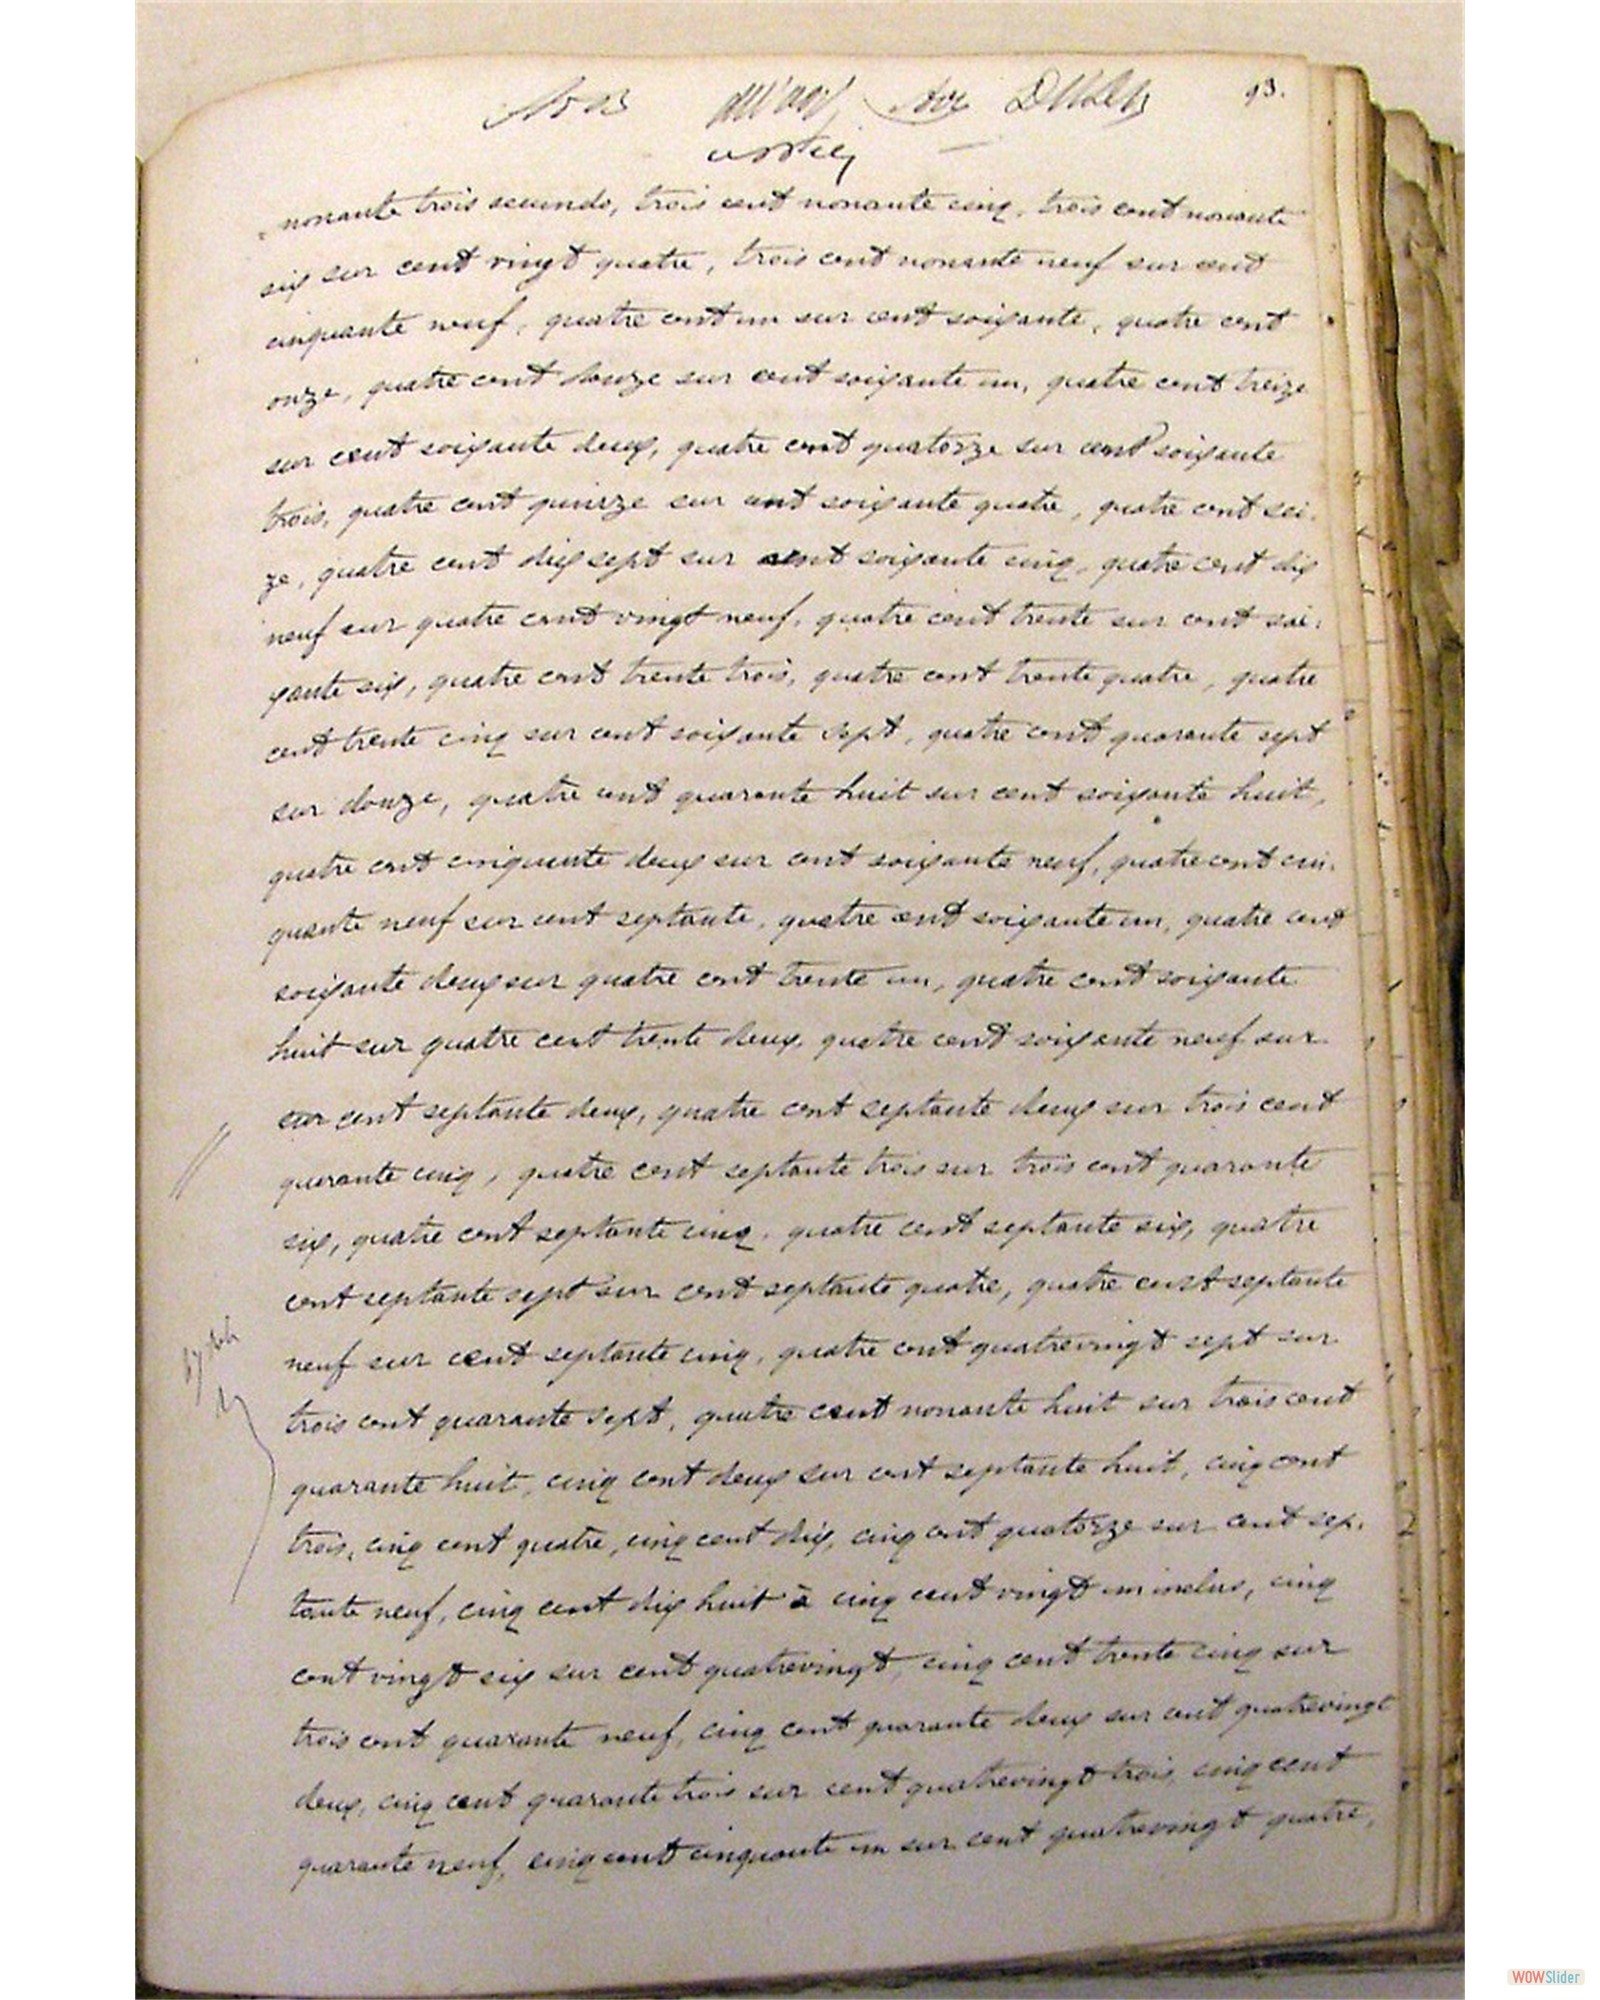 93.
nonante trois secundo, trois cent nonante cinq, trois cent nonante
six sur cent vingt quatre, trois cent nonante neuf sur cent
cinquante neuf, quatre cent un sur cent soixante, quatre cent
onze, quatre cent douze sur cent soixante un, quatre cent treize
sur cent soixante deux, quatre cent quatorze sur cent soixante
trois, quatre cent quinze sur cent soixante quatre, quatre cent sei.
ze, quatre cent dix sept sur cent soixante cinq, quatre cent dix
neuf sur quatre cent vingt neuf, quatre cent trente sur cent soi.
xante six, quatre cent trente trois, quatre cent trente quatre, quatre
cent trente cinq sur cent soixante sept, quatre cent quarante sept
sur douze, quatre cent quarante huit sur cent soixante huit,
quatre cent cinquante deux sur cent soixante neuf, quatre cent cin.
quante neuf sur cent septante, quatre cent soixante un, quatre cent
soixante deux sur quatre cent trente un, quatre cent soixante
huit sur quatre cent trente deux, quatre cent soixante neuf sur
sur cent septante deux, quatre cent septante deux sur trois cent
quarante cinq, quatre cent septante trois sur trois cent quarante
six, quatre cent septante cinq, quatre cent septante six, quatre
cent septante sept sur cent septante quatre, quatre cent septante
neuf sur cent septante cinq, quatre cent quatrevingt sept sur
trois cent quarante sept, quatre cent nonante huit sur trois cent
quarante huit, cinq cent deux sur cent septante huit, cinq cent
trois, cinq cent quatre, cinq cent dix, cinq cent quatorze sur cent sep.
tante neuf, cinq cent dix huit à cinq cent vingt un inclus, cinq
cent vingt six sur cent quatrevingt, cinq cent trente cinq sur
trois cent quarante neuf, cinq cent quarante deux sur cent quatrevingt
deux, cinq cent quarante trois sur cent quatrevingt trois, cinq cent
quarante neuf, cinq cent cinquante un sur cent quatrevingt quatre,
WOWSlider